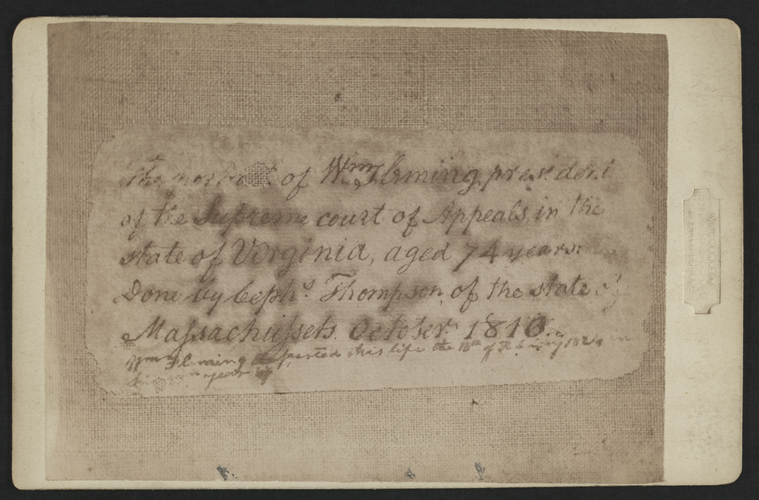 The portrait of Wm. Fleming, president
of the Supreme court of Appeals, in the
state of Virginia, aged 74 years:
Done by Cephs. Thompson, of the state of
Massachussets. October 1810.
Wm. Fleming departed this life the 15th of February 1824
year of